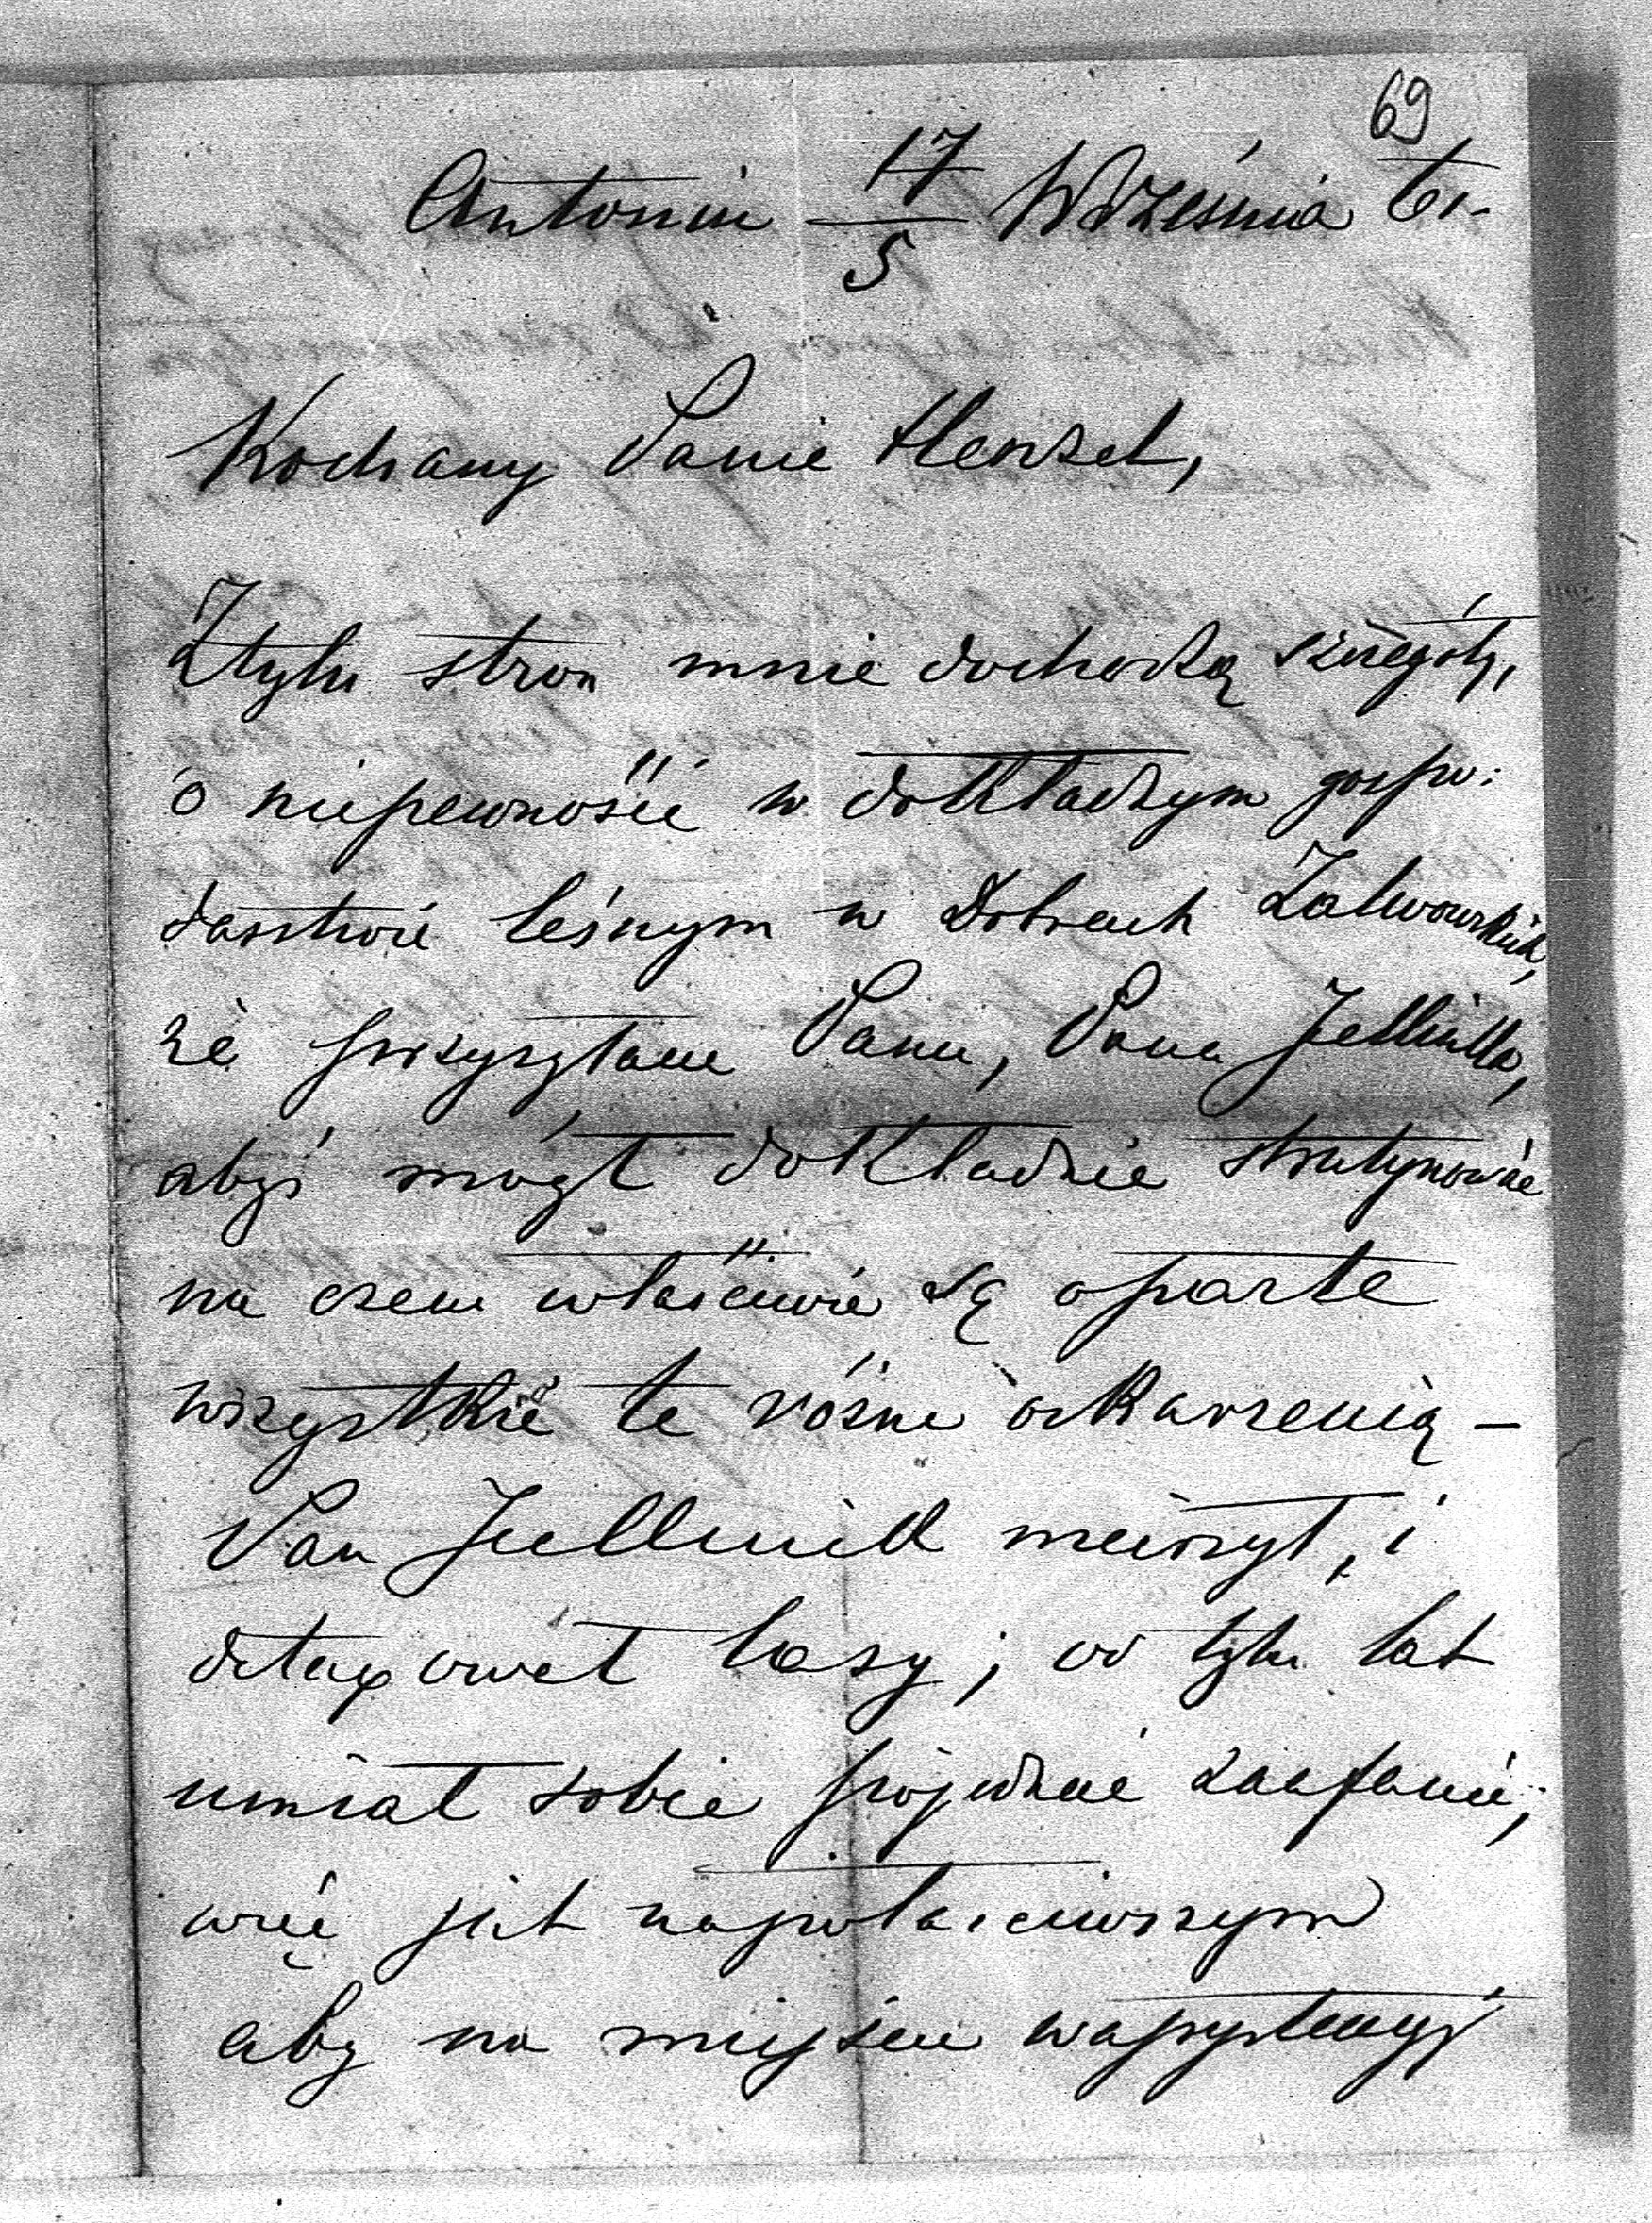 69
Antonin 17/5 Września
Kochany Panie Henzel,
Z tylu stron mnie dochodzą szczegóły,
o niepewność w dokładnym gospo:
darstwie leśnym w Dobrach
że przysyłam Panu, Pana Jellinka,
abyś mógł dokładnie skrutynować
na czem właściwie są oparte
wszystkie te różne oskarzenia –
Pan Jellinek mierzył, i
detaxował lasy; od tylu lat
umiał sobie zjednać zaufanie;
więc jest najwłaściwszym
aby na miejscu